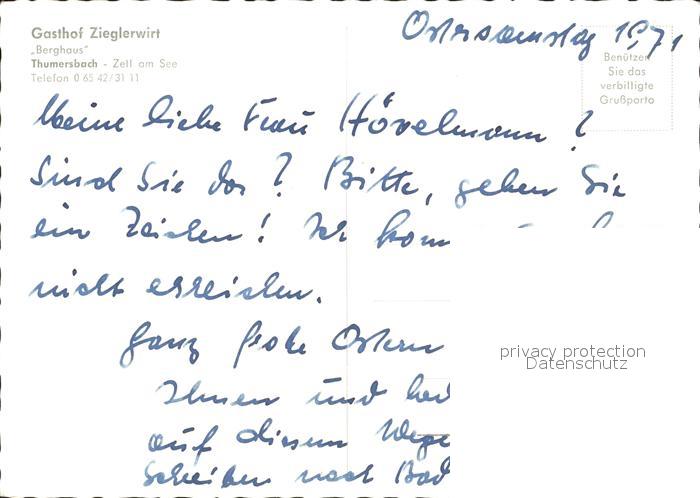 Ostersamstag 1971
Gasthof Zieglerwirt
„Berghaus"
Thumersbach - Zell am See
Telefon 0 65 42/31 11
Benützen
Sie das
verbilligte
Grußporto
Meine liebe Frau Hövelmann?
Sind Sie da? Bitte, geben Sie
ein Zeichen! Ich kom
nicht erreichen.
Ganz frohe Ostern
Ihnen und
auf diesem Wege
Schreiben nach Bad
privacy protection
Datenschutz